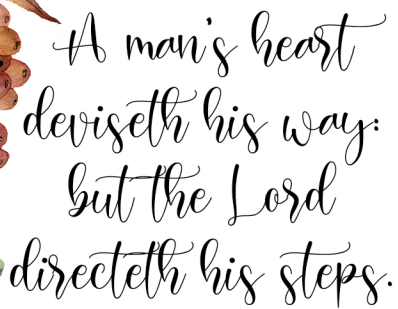 A man's heart
deviseth his way:
but the Lord
directeth his steps.